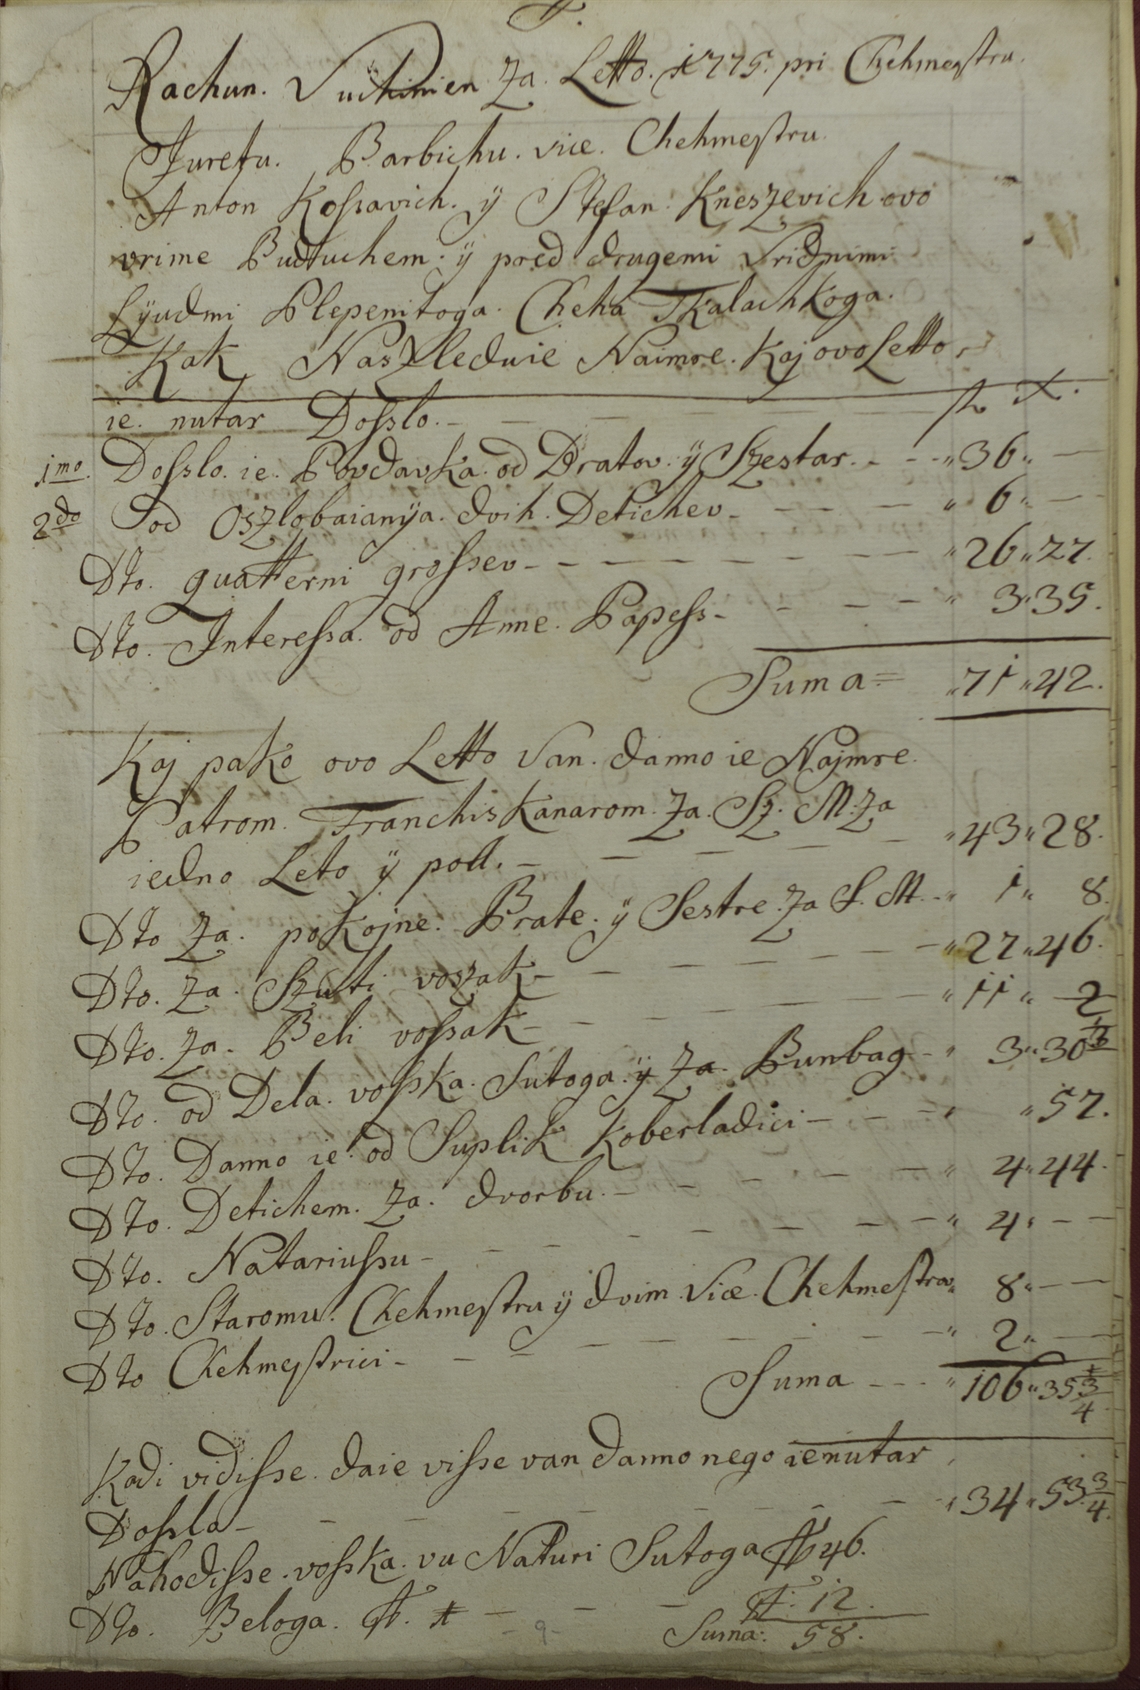 Rachun. Vuchinien Za. Letto. 1775. pri Chehmestru.
Juretu. Barbichu. vice. Chehmestru.
Anton Kossavich. ÿ Stefan. Kneszevich ovo
vrime Buduchem. ÿ pred drugemi Vridnimi
Lÿudmi Plepenitoga. Cheha Tkalachkoga.
Kak Naszleduie Naimre. Kaj ovo Letto
ie. nutar Dosslo. - - - f x.
1mo. Dosslo. ie. Povdavka. od Bratov. ÿ Szestar. - - „ 36 „ —
2do od Oszlobaianÿa. dvih. Detichev - - - „ 6 „ —
Dto. quatterni grossev - - - - „ 26 „ 27.
Dto. Interessa. od Anne. Papess - - - „ 3 „ 35.
Suma = „ 71 „ 42.
Kaj pako ovo Letto Van. danno ie Najmre.
Patrom. Franchiskanarom. Za. Sz. M. Za
iedno Leto ÿ poll. - - - - „ 43 „ 28.
Dto Za. pokojne. Brate. ÿ Sestre. Za S. M. - „ 1 „ 8.
Dto. Za. Szuti voszak - - - - „ 27 „ 46.
Dto. Za. Beli vossak - - - - „ 11 „ 2
Dto. od Dela. vosska. Sutoga. ÿ Za. Bunbag - „ 3 „ 30
Dto. Danno ie. od Suplik Koberladici - - - „ 57.
Dto. Detichem. Za. dvorbu. - - - „ 4 „ 44.
Dto. Natariussu - - - - „ 4 „ - -
Dto. Staromu. Chehmestru ÿ dvim. Vice. Chehmestrov „ 8 „ - -
Dto Chehmestrici - - - - „ 2 „ —
Suma - - - „ 106 „ 35 3/4
Kadi vidisse. daie visse van danno nego ienutar
Dosslo - - - - „ 34 „ 53 3/4.
Nahodisse. vosska. vu Naturi Sutoga ℔ 46.
Dto. Beloga. ℔. - - - ℔. 12.
- 9 - Suma: 58.